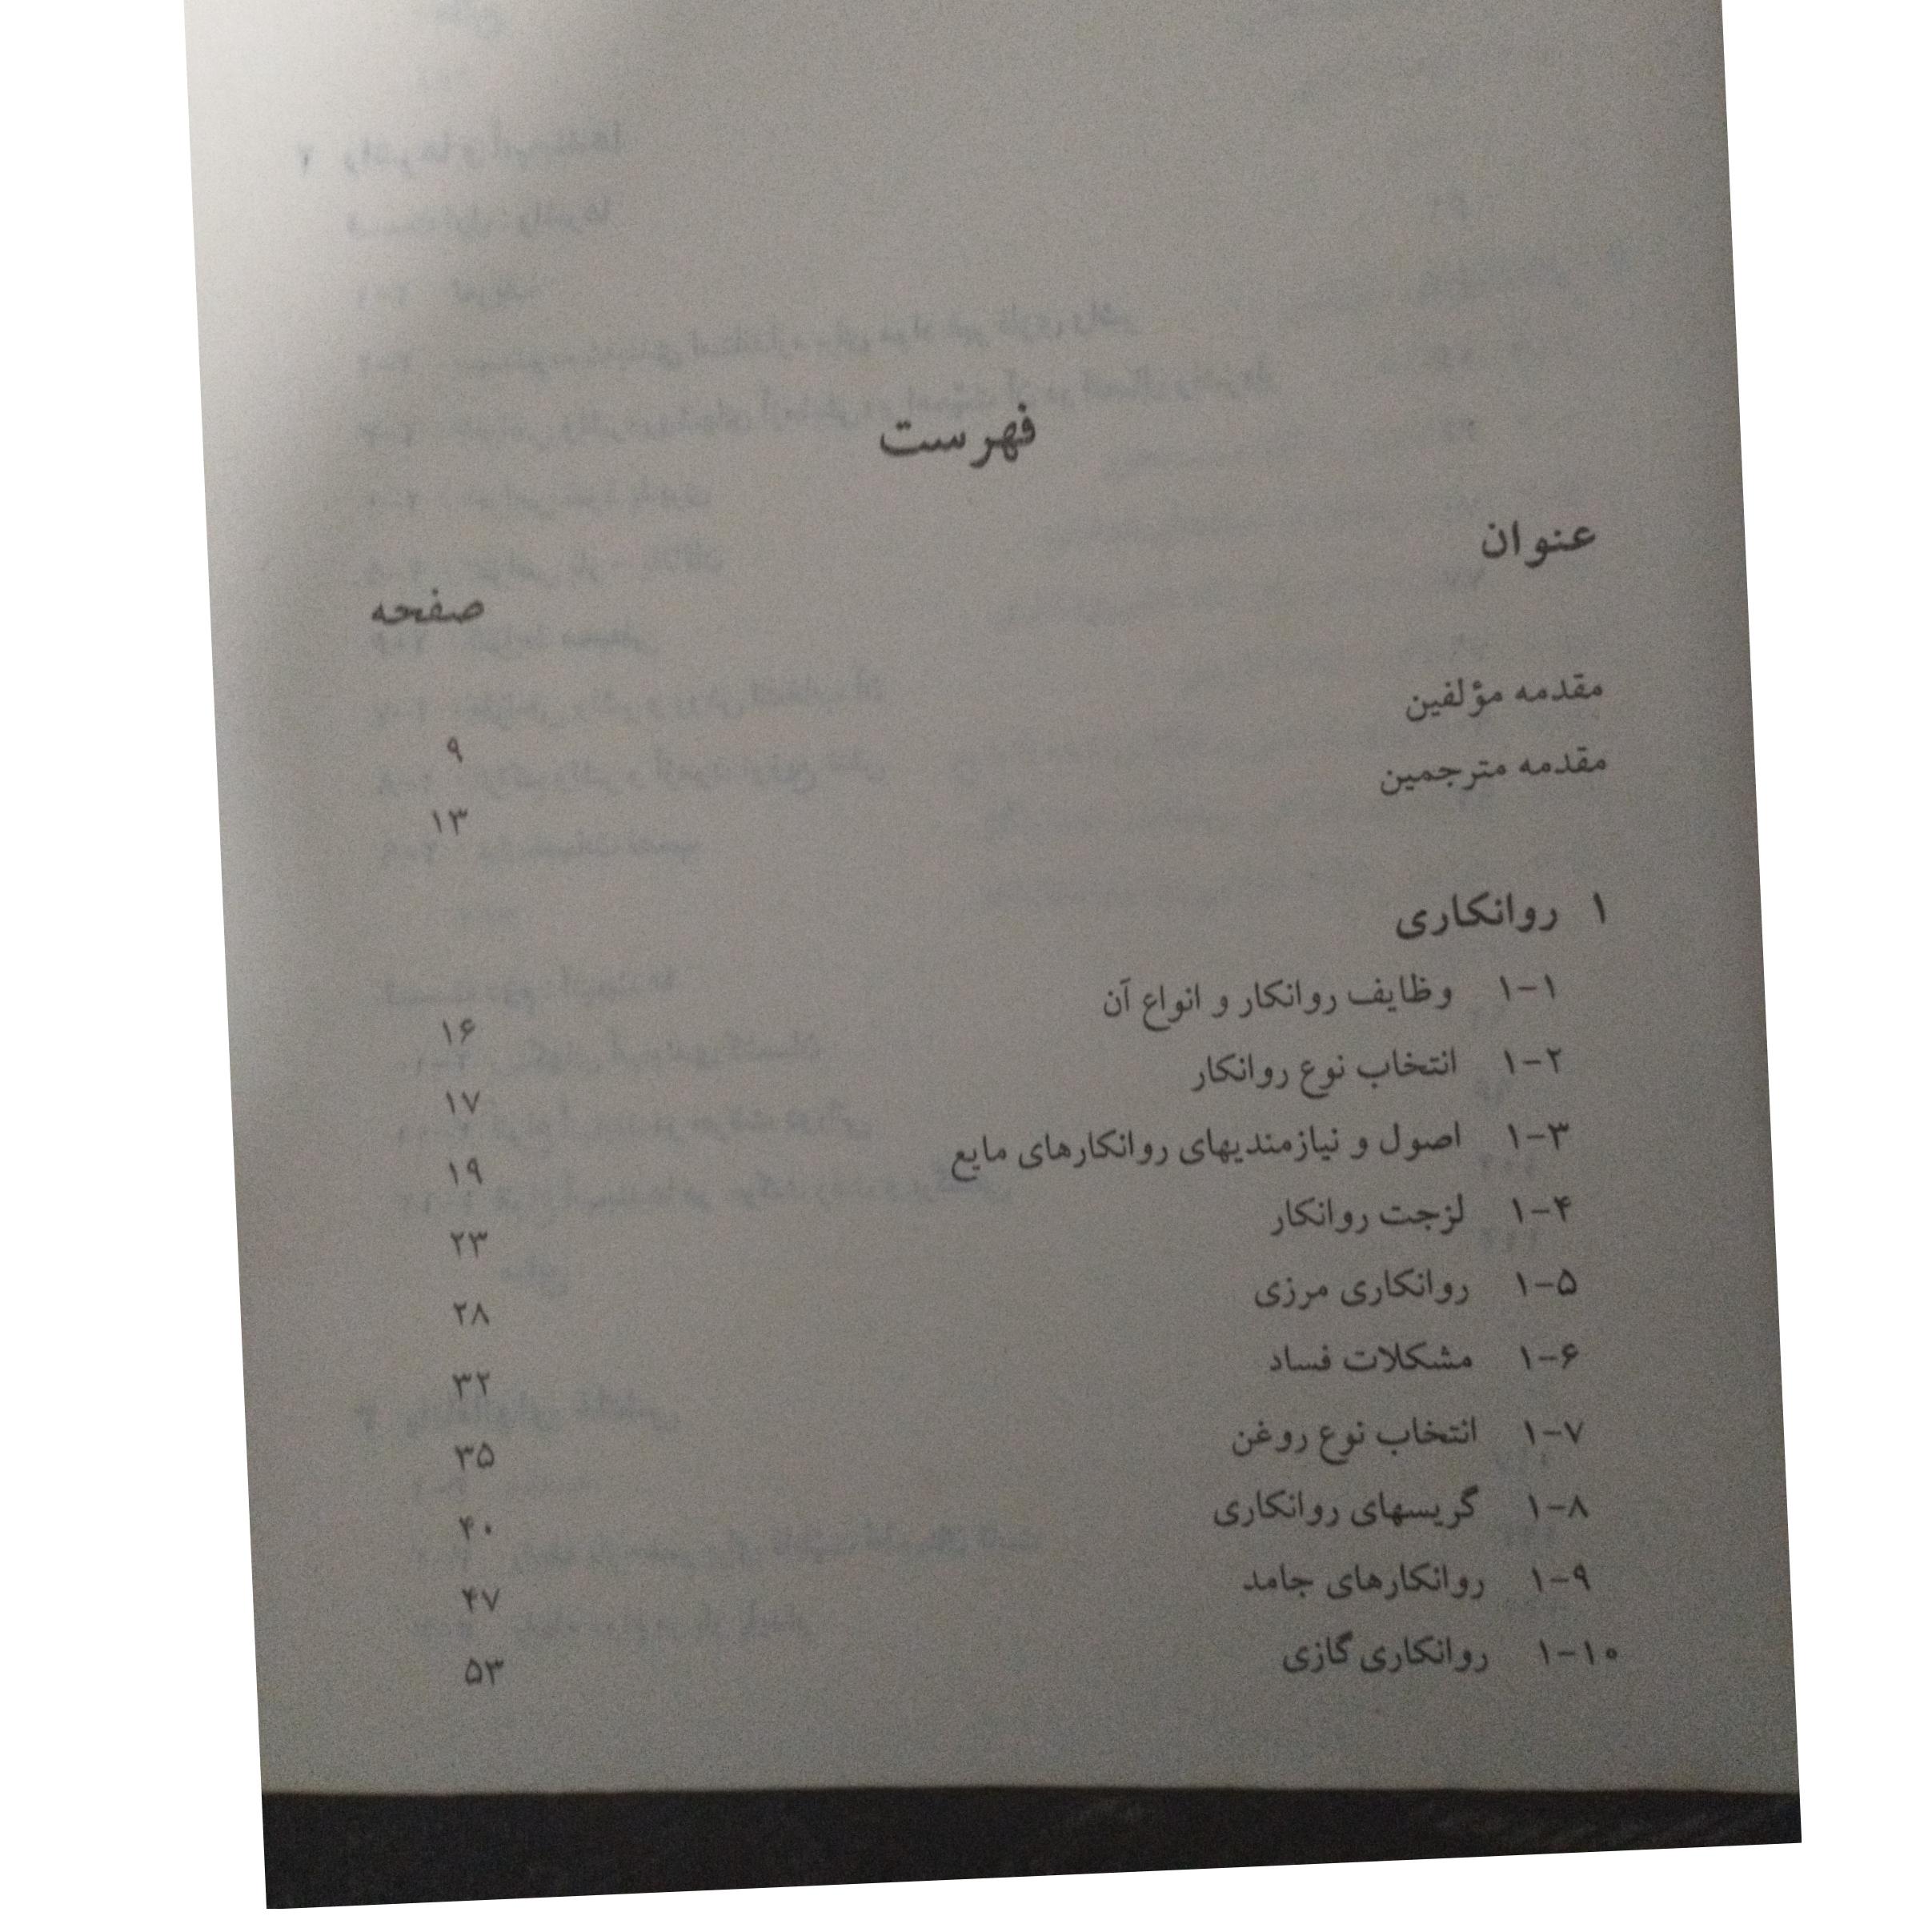 فهرست
عنوان
صفحه
مقدمه مؤلفین ۹
مقدمه مترجمین ۱۳
۱ روانکاری
۱-۱ وظایف روانکار و انواع آن ۱۶
۱-۲ انتخاب نوع روانکار ۱۷
۱-۳ اصول و نیازمندیهای روانکارهای مایع ۱۹
۱-۴ لزجت روانکار ۲۳
۱-۵ روانکاری مرزی ۲۸
۱-۶ مشکلات فساد ۳۲
۱-۷ انتخاب نوع روغن ۳۵
۱-۸ گریسهای روانکاری ۴۰
۱-۹ روانکارهای جامد ۴۷
۱-۱۰ روانکاری گازی ۵۳